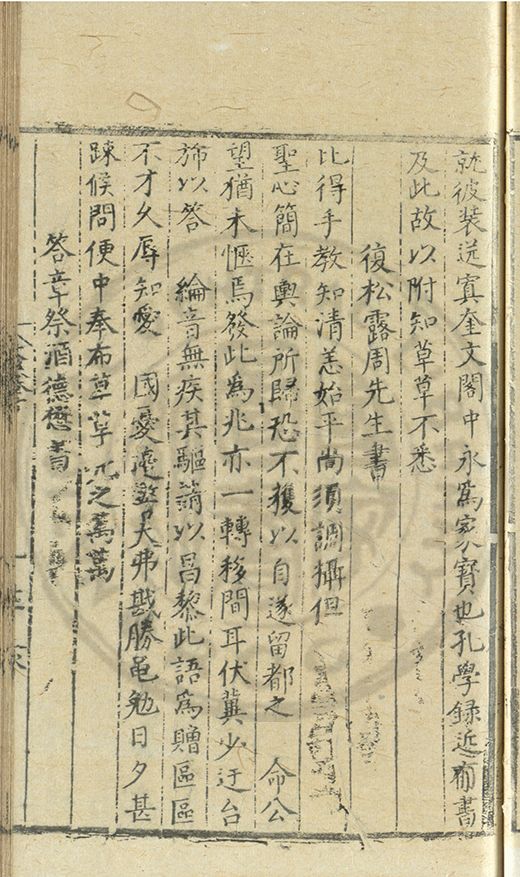 就彼装送寘奎文閣中永爲家寳也孔學録近布書
及此故以附知草草不悉
復松露周先生書
比得手教知清恙始平尚須調攝但
聖心簡在輿論所歸恐不獲以自遂留都之 命公
望猶未愜焉發此爲兆亦一轉移間耳伏冀少迂台
斾以答 綸音無疾其驅請以昌黎此語爲贈區區
不才久辱知愛 國憂邊大弗戡勝黾勉日夕甚
踈候問便中奉布草草亮之萬萬
答章祭酒德懋書